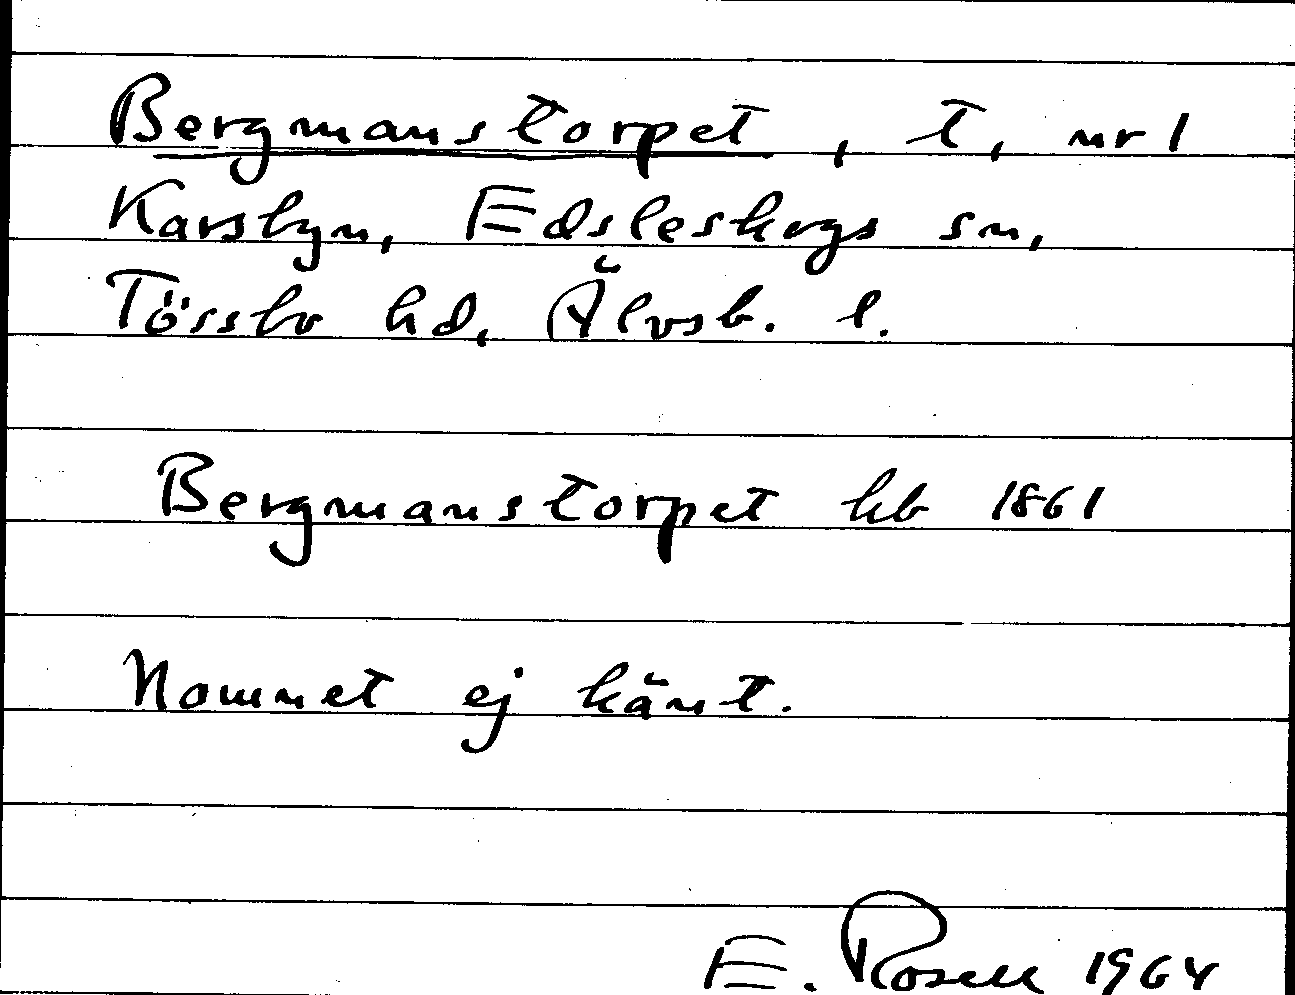 Bergmanstorpet, t, nr 1
Karsbyn, Edsleskogs sn,
Tössbo hd, Älvsb. l.
Bergmanstorpet hb 1861
Namnet ej känt.
E. Rosell 1964